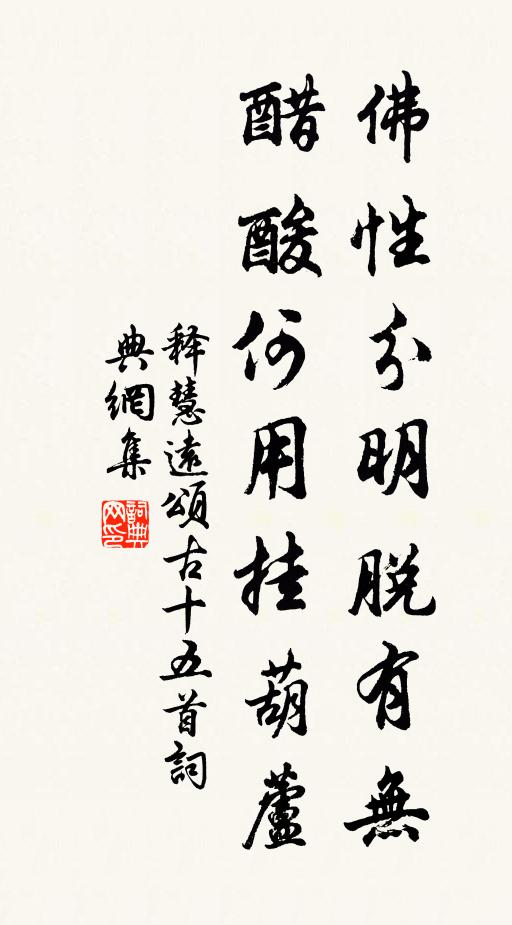 佛性分明脱有無
醋酸何用挂葫蘆
释慧遠頌古十五首詞
典網集
詞典网印